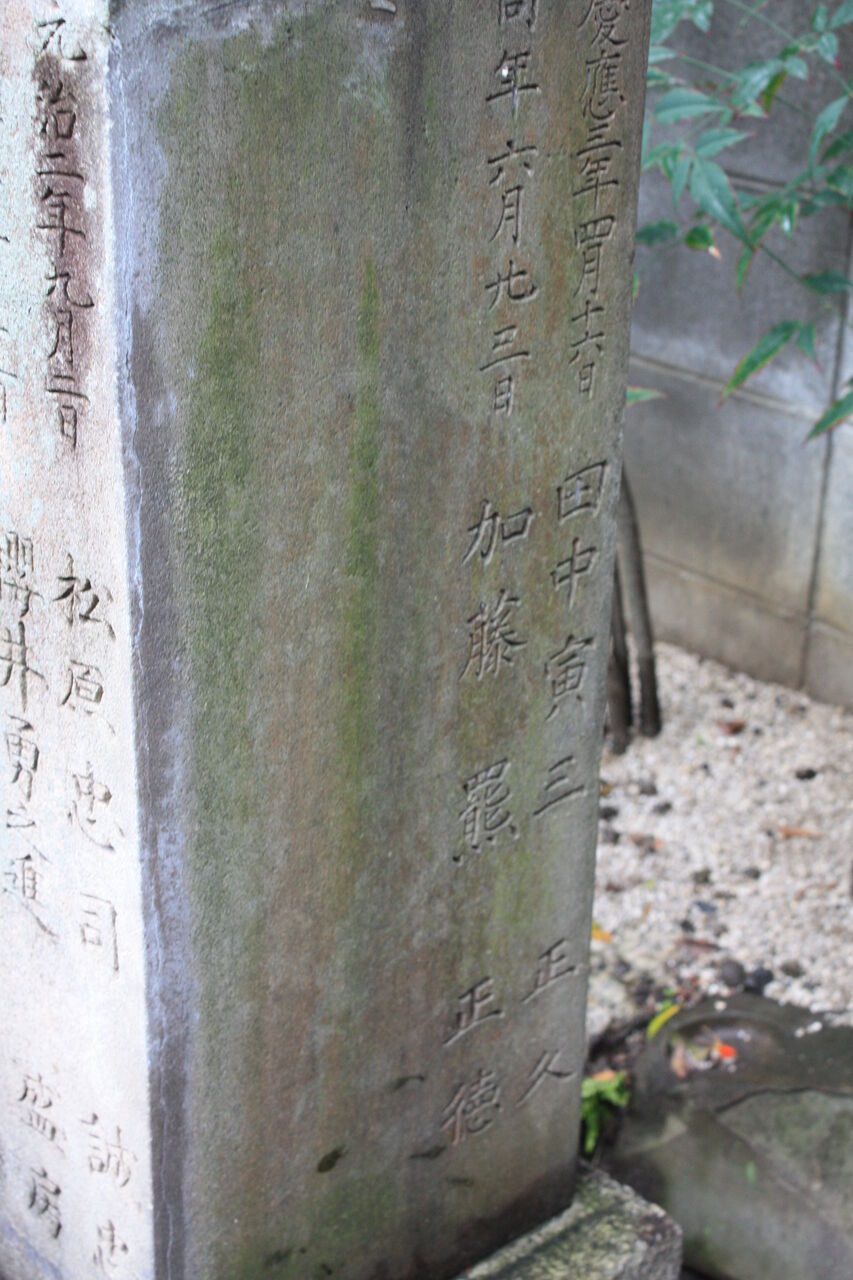 慶應三年四月十六日 田中寅三 正久
同年六月廿三日 加藤羆 正徳
元治二年九月二日 松原忠司 誠忠
櫻井勇之進 盛房